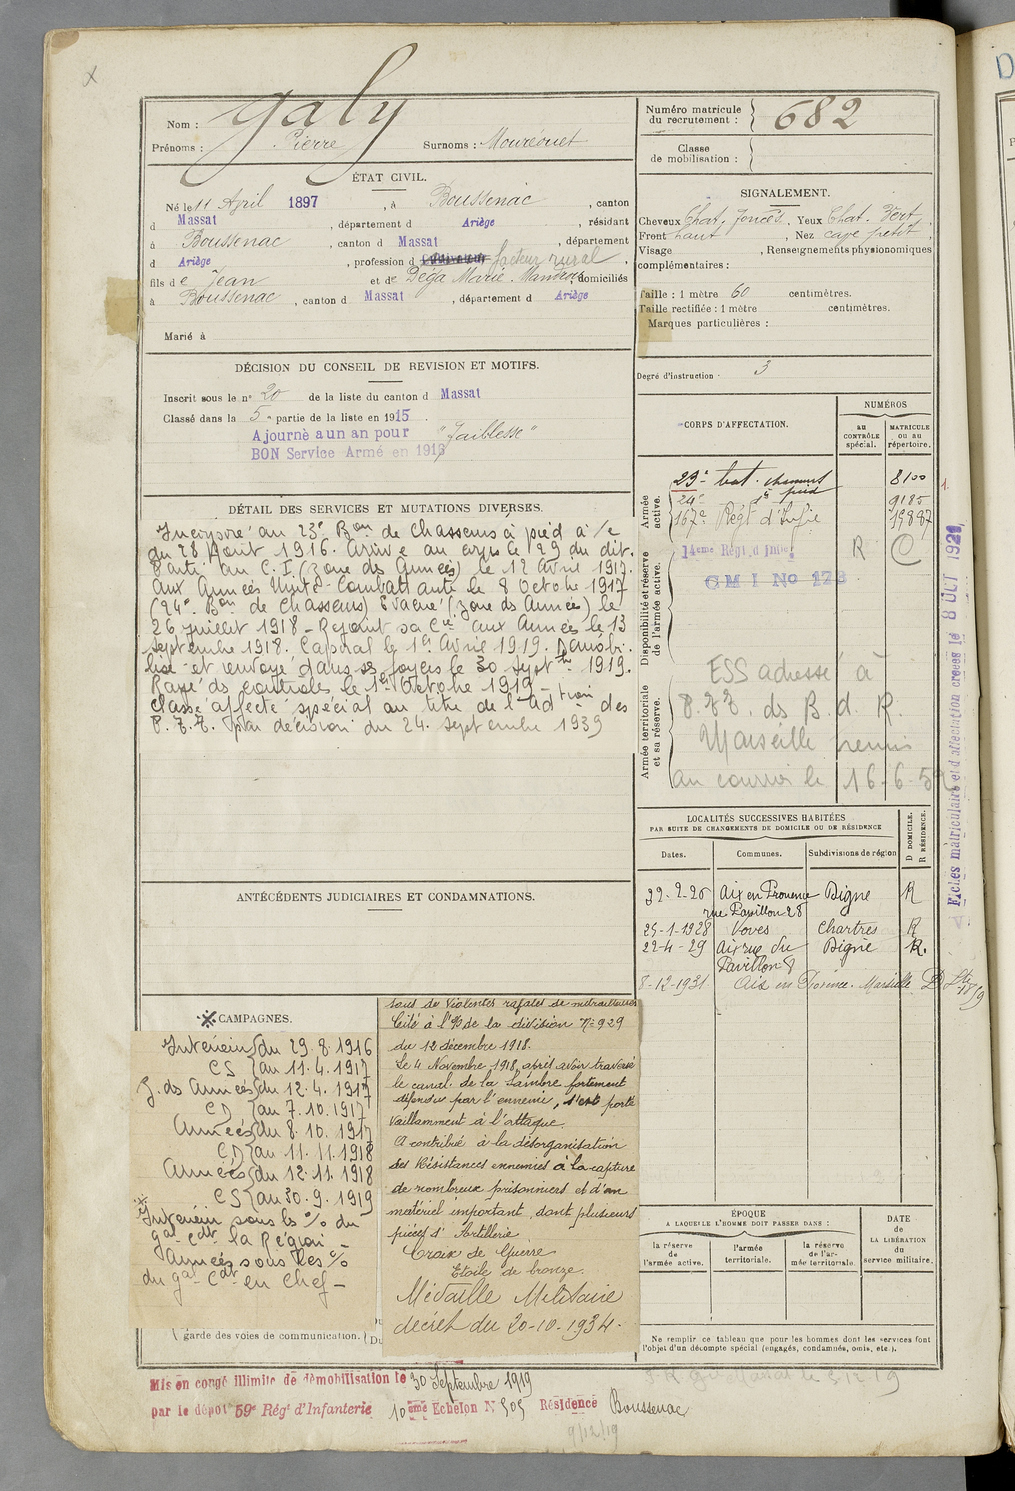 Nom : Galy
Prénoms : Pierre Surnoms : Mouréouet
Numéro matricule
du recrutement : 682
Classe
de mobilisation :
ÉTAT CIVIL.
Né le 11 April 1897, à Boussenac, canton
d Massat, département d Ariège, résidant
à Boussenac, canton d Massat, département
d Ariège, profession d facteur rural.
fils de Jean et de Dega Marie, domiciliés
à Boussenac, canton d Massat, département d Ariège
Marié à
SIGNALEMENT.
Cheveux Chat. foncés. Yeux Chat. Vert.
Front haut, Nez cave petit.
Visage , Renseignements physionomiques
complémentaires :
Taille : 1 mètre 60 centimètres.
Taille rectifiée : 1 mètre centimètres.
Marques particulières :
Degré d'instruction 3
DÉCISION DU CONSEIL DE REVISION ET MOTIFS.
Inscrit sous le n° 20 de la liste du canton d Massat
Classé dans la 5e partie de la liste en 1915.
Ajourné a un an pour "Faiblesse"
BON Service Armé en 1916
DÉTAIL DES SERVICES ET MUTATIONS DIVERSES.
Incorporé au 23e Bon de Chasseurs à pied à /c
du 28 Aout 1916. Arrivé au corps le 29 du dit.
Parti au C.I (zone des Armées) le 12 Avril 1917.
aux Armées Unité Combattante le 8 Octobre 1917
(24e Bon de Chasseurs) Evacué (zone ds Armées) le
26 juillet 1918 - Rejoint sa Cie aux Armées le 13
septembre 1918. Caporal le 1er Avril 1919. Démobi-
lisé et renvoyé dans ses foyers le 30 septbre 1919.
Rayé ds controles le 1er Octobre 1919 -
Classé affecté spécial au titre de l'Adtion des
P.T.T. par décision du 24 septembre 1939
CORPS D'AFFECTATION.
NUMÉROS
au
CONTRÔLE
spécial.
MATRICULE
ou au
répertoire.
Armée
active.
23e bat. chasseurs 8100
24e à pied 9185
167e Régt d'Infie 19887
Disponibilité et réserve
de l'armée active.
14eme Régt d'Infie R C
C M I No 173
Armée territoriale
et sa réserve.
ESS adressé à
P.T.T. ds B. d. R.
Marseille remis
au courrier le 16-6-52
Fiches matriculaire et d'affectation créées le 8 OCT 1921
LOCALITÉS SUCCESSIVES HABITÉES
PAR SUITE DE CHANGEMENTS DE DOMICILE OU DE RÉSIDENCE
Dates. Communes. Subdivisions de région D DOMICILE. R RÉSIDENCE.
22-2-26 Aix en Provence Digne R
rue Pavillon 28
25-1-1928 Voves Chartres R
22-4-29 Aix rue du Digne R.
Pavillon 8
8-12-1931 Aix en Provence. Marseille D
ANTÉCÉDENTS JUDICIAIRES ET CONDAMNATIONS.
CAMPAGNES.
Intérieur du 29.8.1916
CS au 11.4.1917
Z. ds Armées du 12.4.1917
CD au 7.10.1917
Armées du 8.10.1917
CD au 11.11.1918
Armées du 12.11.1918
CS au 30.9.1919
Intérieur sous ls % du
gal Cdt la Région -
Armées sous les %
du gal Cdt en Chef -
garde des voies de communication.
sous de violentes rafales de mitrailleuses
Cité à l'% de la division N° 929
du 12 décembre 1918.
Le 4 Novembre 1918, après avoir traversé
le canal de la Sambre fortement
défendu par l'ennemi, s'est porté
vaillamment à l'attaque.
A contribué à la désorganisation
des Résistances ennemies à la capture
de nombreux prisonniers et d'un
matériel important, dont plusieurs
pièces d'Artillerie.
Croix de Guerre
Etoile de bronze.
Médaille Militaire
décret du 20-10-1934.
ÉPOQUE
A LAQUELLE L'HOMME DOIT PASSER DANS :
la réserve
de
l'armée active.
l'armée
territoriale.
la réserve
de l'ar-
mée territoriale.
DATE
de
LA LIBÉRATION
du
service militaire.
Ne remplir ce tableau que pour les hommes dont les services font
l'objet d'un décompte spécial (engagés, condamnés, omis, etc.).
Mis en congé illimité de démobilisation le 30 Septembre 1919
par le dépôt 59e Régt d'Infanterie 10eme Echelon N° 505 Résidence Boussenac
9/12/19